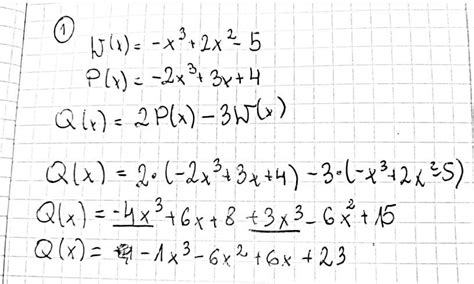 ①
W(x) = -x³ + 2x² - 5
P(x) = -2x³ + 3x + 4
Q(x) = 2P(x) - 3W(x)
Q(x) = 2·(-2x³ + 3x + 4) - 3·(-x³ + 2x² - 5)
Q(x) = -4x³ + 6x + 8 + 3x³ - 6x² + 15
Q(x) = -1x³ - 6x² + 6x + 23